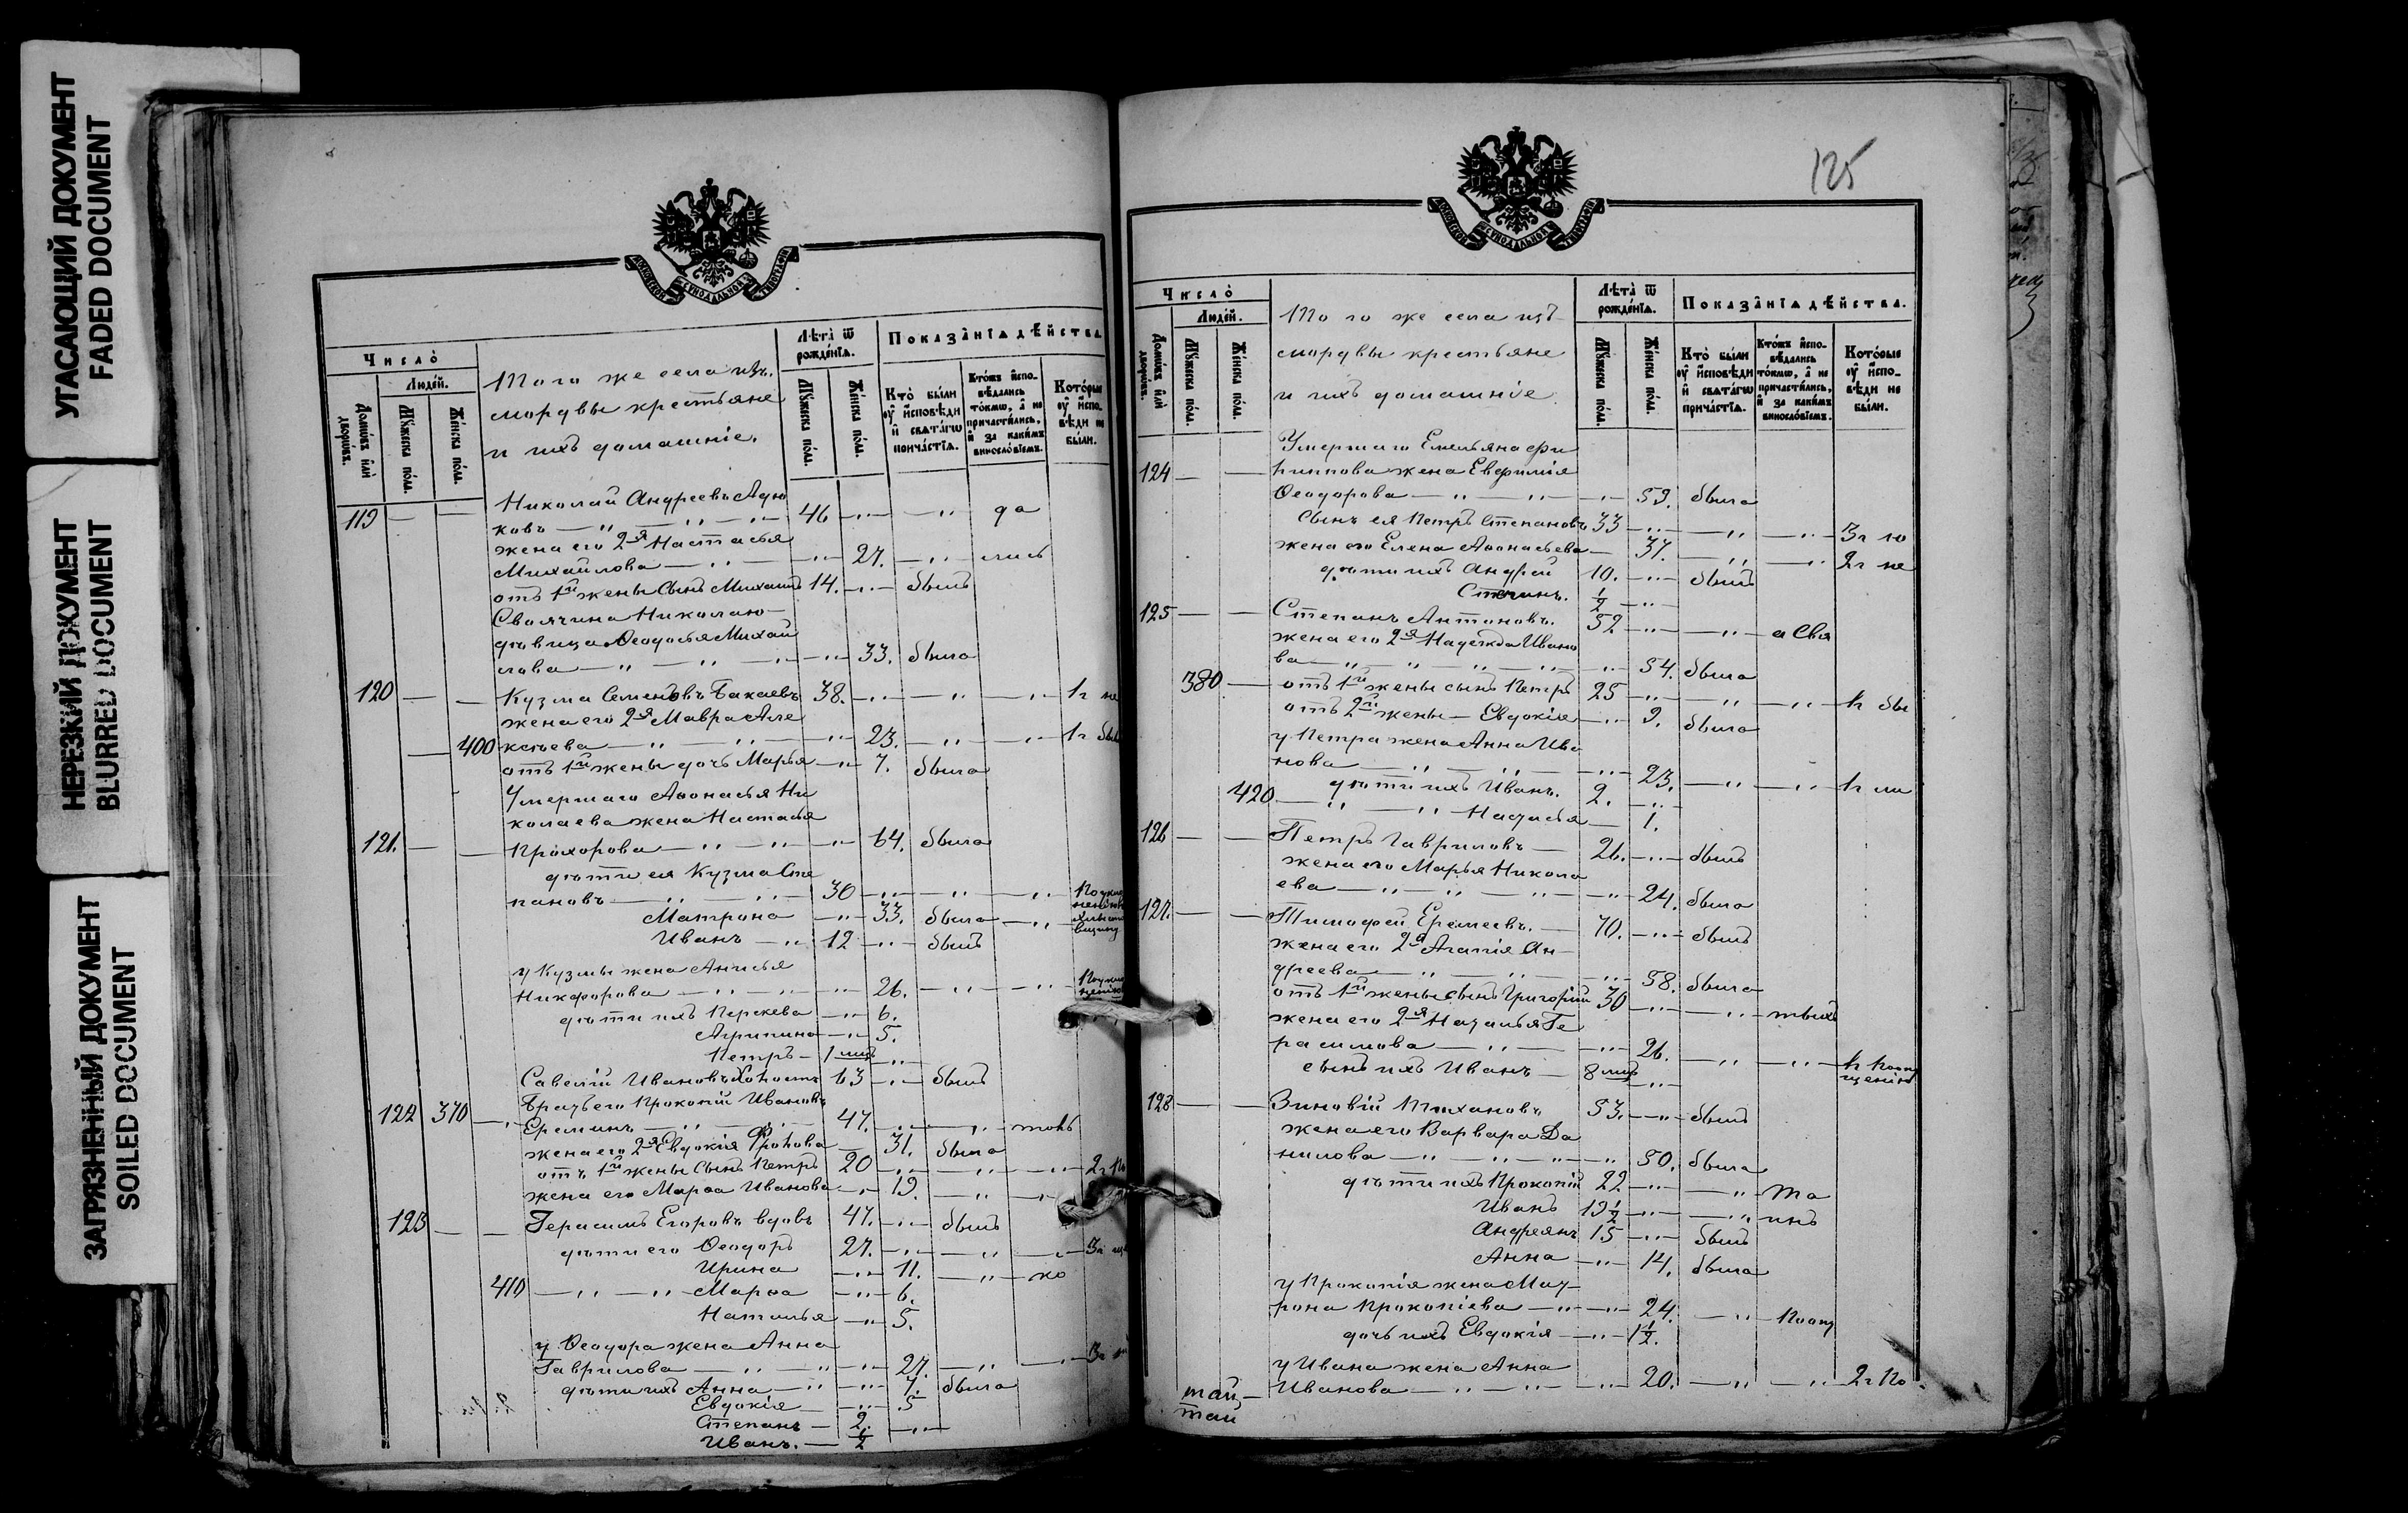 УГАСАЮЩИЙ ДОКУМЕНТ
FADED DOCUMENT
НЕРЕЗКИЙ ДОКУМЕНТ
BLURRED DOCUMENT
ЗАГРЯЗНЕННЫЙ ДОКУМЕНТ
SOILED DOCUMENT
МОСКОВСКОЙ СѴНОДАЛЬНОЙ ТИПОГРАФІИ
Число
Людей.
Домовъ или дворовъ.
Мужеска полу.
Женска полу.
Того же села изъ
мордвы крестьяне
и ихъ домашніе.
Лѣта ѿ рожденїѧ.
Мужеска полу.
Женска полу.
Показанїѧ дѣйства.
Кто были у исповѣди и свѧтагѡ причастїѧ.
Ктожъ исповѣдались токмѡ, а не причастились, и за какимъ винословїемъ.
Которые у исповѣди не были.
Николай Андреевъ
119 — — ковъ — " — " — 46 — " — " да
жена его 2я Настасья
Михайлова — " — " — 27. — " лись
отъ 1й жены сынъ Михаилъ 14. — " — былъ
Своячина Николаю
дѣвица Ѳеодосья Михай
лова — " — " — " — 33. была
120 — — Кузма Семеновъ Бакаевъ 38. — " — " — " 1г не
жена его 2я Мавра Але
400 ксѣева — " — " — " 23. — " — " 1г бы
отъ 1й жены дочь Марья — " 7. была
Умершаго Аѳонасья Ни
колаева жена Настасья
121. — — Прохорова — " — " — " 64. была
дѣти ея Кузма Сте
пановъ — " — " — 30 — " — " — "
Матрона — " 33. была — "
Иванъ — " 12 — " — былъ
у Кузмы жена Анисья
Никифорова — " — " — " 26. — " — "
дѣти ихъ Параскева — " 6.
Агрипина — " 5.
Петръ — 1 мѣс — "
Савелій Ивановъ холостъ 63 — " — былъ
Братъ его Прокопій Ивановъ
122 370 — Ереминъ — " — 47. — " — " токъ
жена его 2я Евдокія Фролова — 31. была
отъ 1й жены сынъ Петръ 20 — " — " — " 2г по
жена его Марѳа Иванова — " 19. — " — "
123 — — Герасимъ Егоровъ вдовъ 47. — " — былъ
дѣти его Ѳеодоръ 27. — " — " — " 3г
Ирина — " 11. — " ко
410 — " — " — Марѳа — " 6.
Наталья — " 5.
у Ѳеодора жена Анна
Гаврилова — " — " — " 27. — " — " 3г
дѣти ихъ Анна — " — " 7. была
Евдокія — " 5
Степанъ — 2. — "
Иванъ. — ½
125
МОСКОВСКОЙ СѴНОДАЛЬНОЙ ТИПОГРАФІИ
Число
Людей.
Домовъ или дворовъ.
Мужеска полу.
Женска полу.
Того же села изъ
мордвы крестьяне
и ихъ домашніе
Лѣта ѿ рожденїѧ.
Мужеска полу.
Женска полу.
Показанїѧ дѣйства.
Кто были у исповѣди и свѧтагѡ причастїѧ.
Ктожъ исповѣдались токмѡ, а не причастились, и за какимъ винословїемъ.
Которые у исповѣди не были.
Умершаго Емельяна Фи
124 — — липпова жена Евфимія
Ѳеодорова — " — " — " 59. была
сынъ ея Петръ Степановъ 33 — " — " — " 3г ю
жена его Елена Аѳонасьева — 37. — " — " 2г не
дѣти ихъ Андрей 10. — " былъ
½ — "
125 — — Степанъ Антоновъ. 52. — " — " а Свя
жена его 2я Надежда Ивано
ва — " — " — " — " 54. была
380 — отъ 1й жены сынъ Петръ 25 — " — " — " 1г бы
отъ 2й жены — Евдокія — " 9. была
у Петра жена Анна Ива
нова — " — " — " 23. — " — " 1г ли
420 дѣти ихъ Иванъ. 2. — "
— " — " Настасья — 1.
126 — — Петръ Гавриловъ — 26. — " — былъ
жена его Марья Никола
ева — " — " — " — " 24. была
127. — — Тимофей Еремеевъ. — 70. — " — былъ
жена его 2я Агапія Ан
дреева — " — " — " 58. была
отъ 1й жены сынъ Григорій 30 — " — "
жена его 2я Наталья Ге
расимова — " — " 26. — " — "
сынъ ихъ Иванъ — 8 мѣс — "
128 — — Зиновій Тихановъ 53. — " былъ
жена его Варвара Да
нилова — " — " — " — " 50. была
дѣти ихъ Прокопій 22. — " — " та
Иванъ 19½ — " — " инъ
Андреянъ 15 — " былъ
Анна — " 14. была
у Прокопія жена Мат
рона Прокопіева — " — " 24. — "
дочь ихъ Евдокія — " 1½.
у Ивана жена Анна
Иванова — " — " — " 20. — " — " 2г по
тай
тай